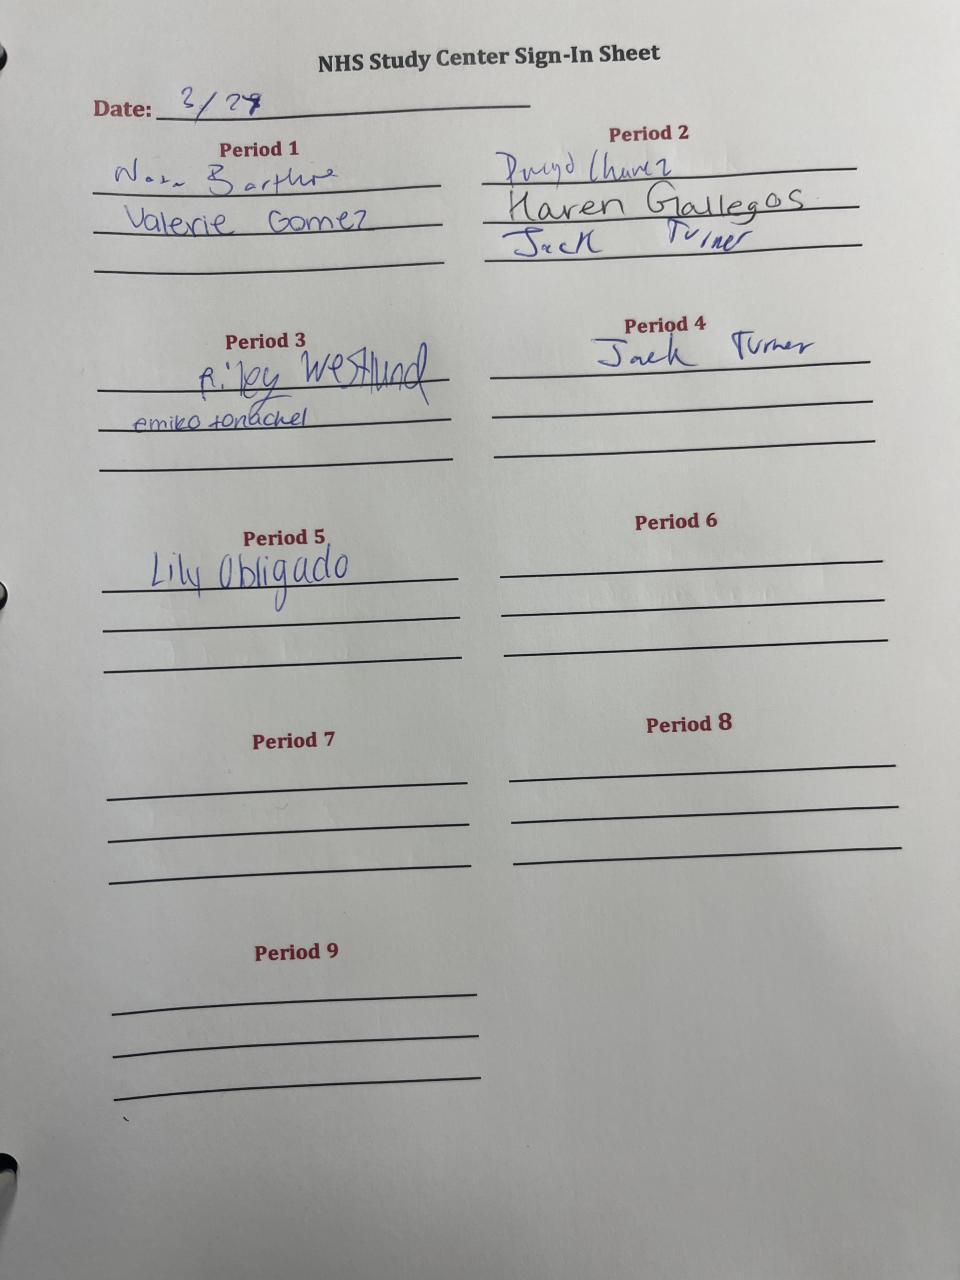 NHS Study Center Sign-In Sheet
Date: 3/
Period 1
Valerie Gomez
Period 2
Karen Gallegos
Jack Turner
Period 3
Riley Westlund
emiko tonachel
Period 4
Jack Turner
Period 5
Lily Obligado
Period 6
Period 7
Period 8
Period 9